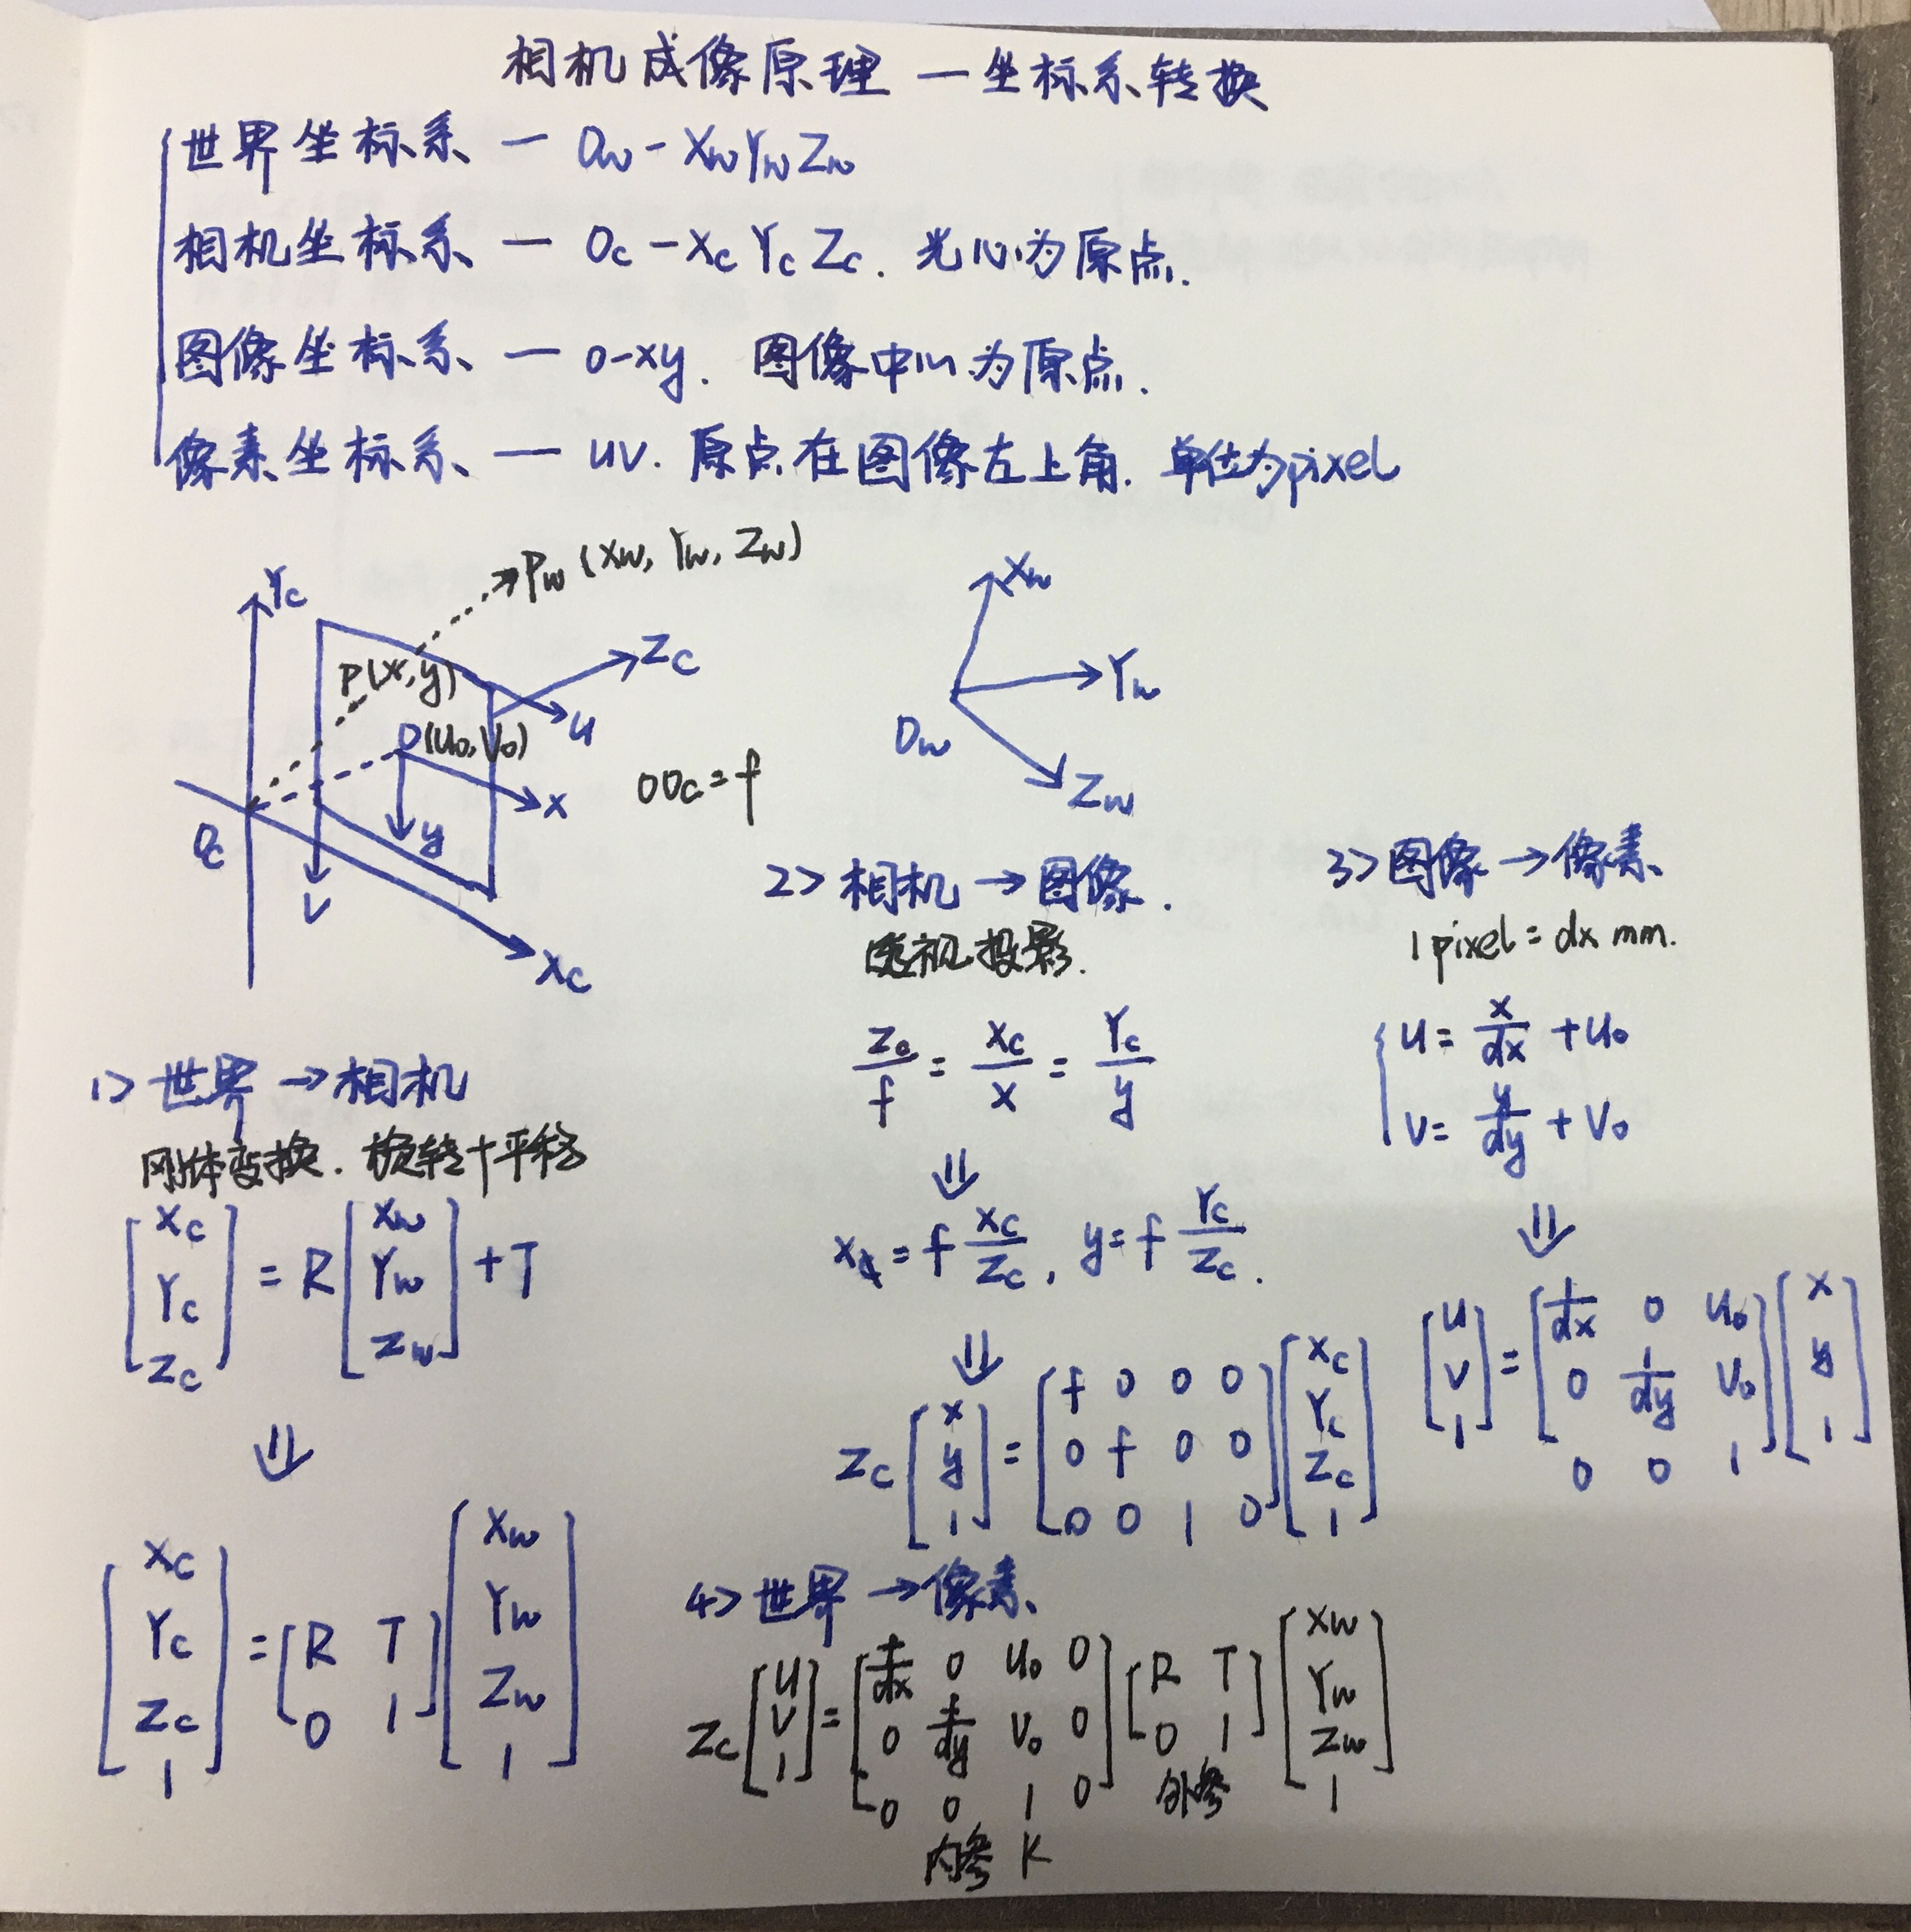 相机成像原理 — 坐标系转换
世界坐标系 — Ow - XwYwZw
相机坐标系 — Oc - Xc Yc Zc. 光心为原点.
图像坐标系 — o-xy. 图像中心为原点.
像素坐标系 — uv. 原点在图像左上角. 单位为pixel
Yc
Pw (Xw, Yw, Zw)
Zc
P(x,y)
u
O(u0,v0)
x
y
Oc
v
Xc
OOc = f
Xw
Yw
Ow
Zw
1> 世界 → 相机
刚体变换. 旋转+平移
[Xc Yc Zc] = R [Xw Yw Zw] + T
⇓
[Xc Yc Zc 1] = [R T 0 1] [Xw Yw Zw 1]
2> 相机 → 图像.
透视投影.
Zc/f = Xc/x = Yc/y
⇓
x = f Xc/Zc, y = f Yc/Zc.
⇓
Zc [x y 1] = [f 0 0 0 0 f 0 0 0 0 1 0] [Xc Yc Zc 1]
3> 图像 → 像素
1 pixel = dx mm.
u = x/dx + u0
v = y/dy + v0
⇓
[u v 1] = [1/dx 0 u0 0 1/dy v0 0 0 1] [x y 1]
4> 世界 → 像素
Zc [u v 1] = [f/dx 0 u0 0 0 f/dy v0 0 0 0 1 0] [R T 0 1] [Xw Yw Zw 1]
外参
内参 K